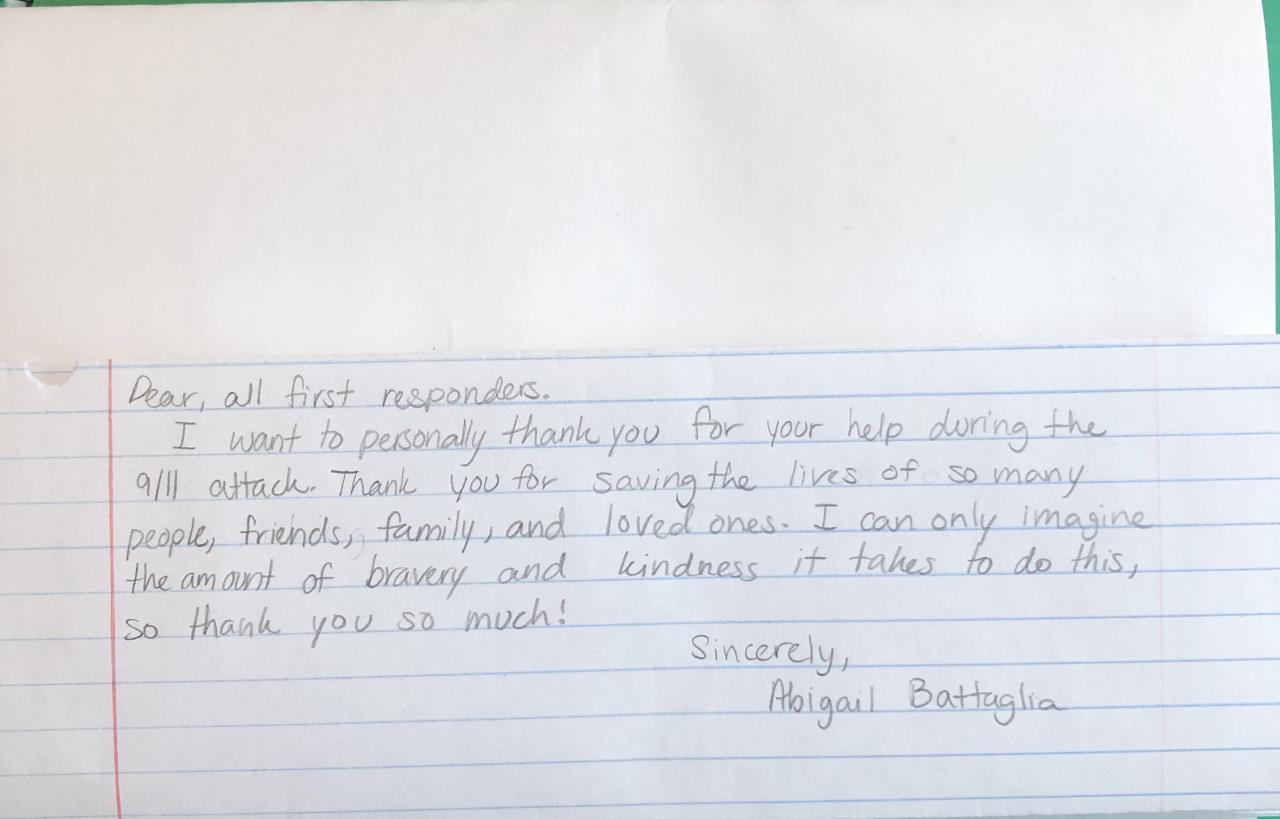 Dear, all first responders.
I want to personally thank you for your help during the
9/11 attack. Thank you for saving the lives of so many
people, friends, family, and loved ones. I can only imagine
the amount of bravery and kindness it takes to do this,
so thank you so much!
Sincerely,
Abigail Battaglia